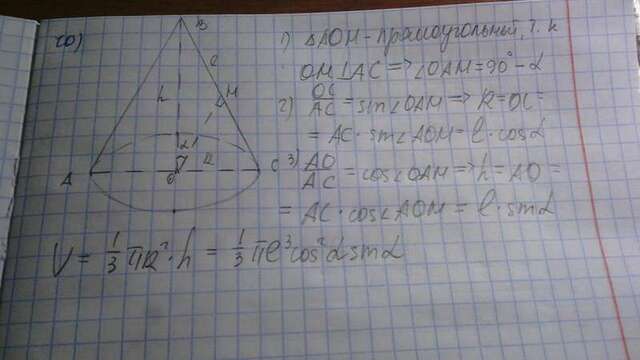 10)
B
l
H
h
α
R
A
O
C
1) ΔAOH - прямоугольный, т. к
OH⊥AC => ∠OAH = 90° - α
2) OC/AC = sin∠OAH => R = OC =
= AC · sin∠AOH = l · cosα
3) AO/AC = cos∠OAH => h = AO =
= AC · cos∠AOH = l · sinα
V = 1/3 πR² · h = 1/3 πl³cos²α sinα